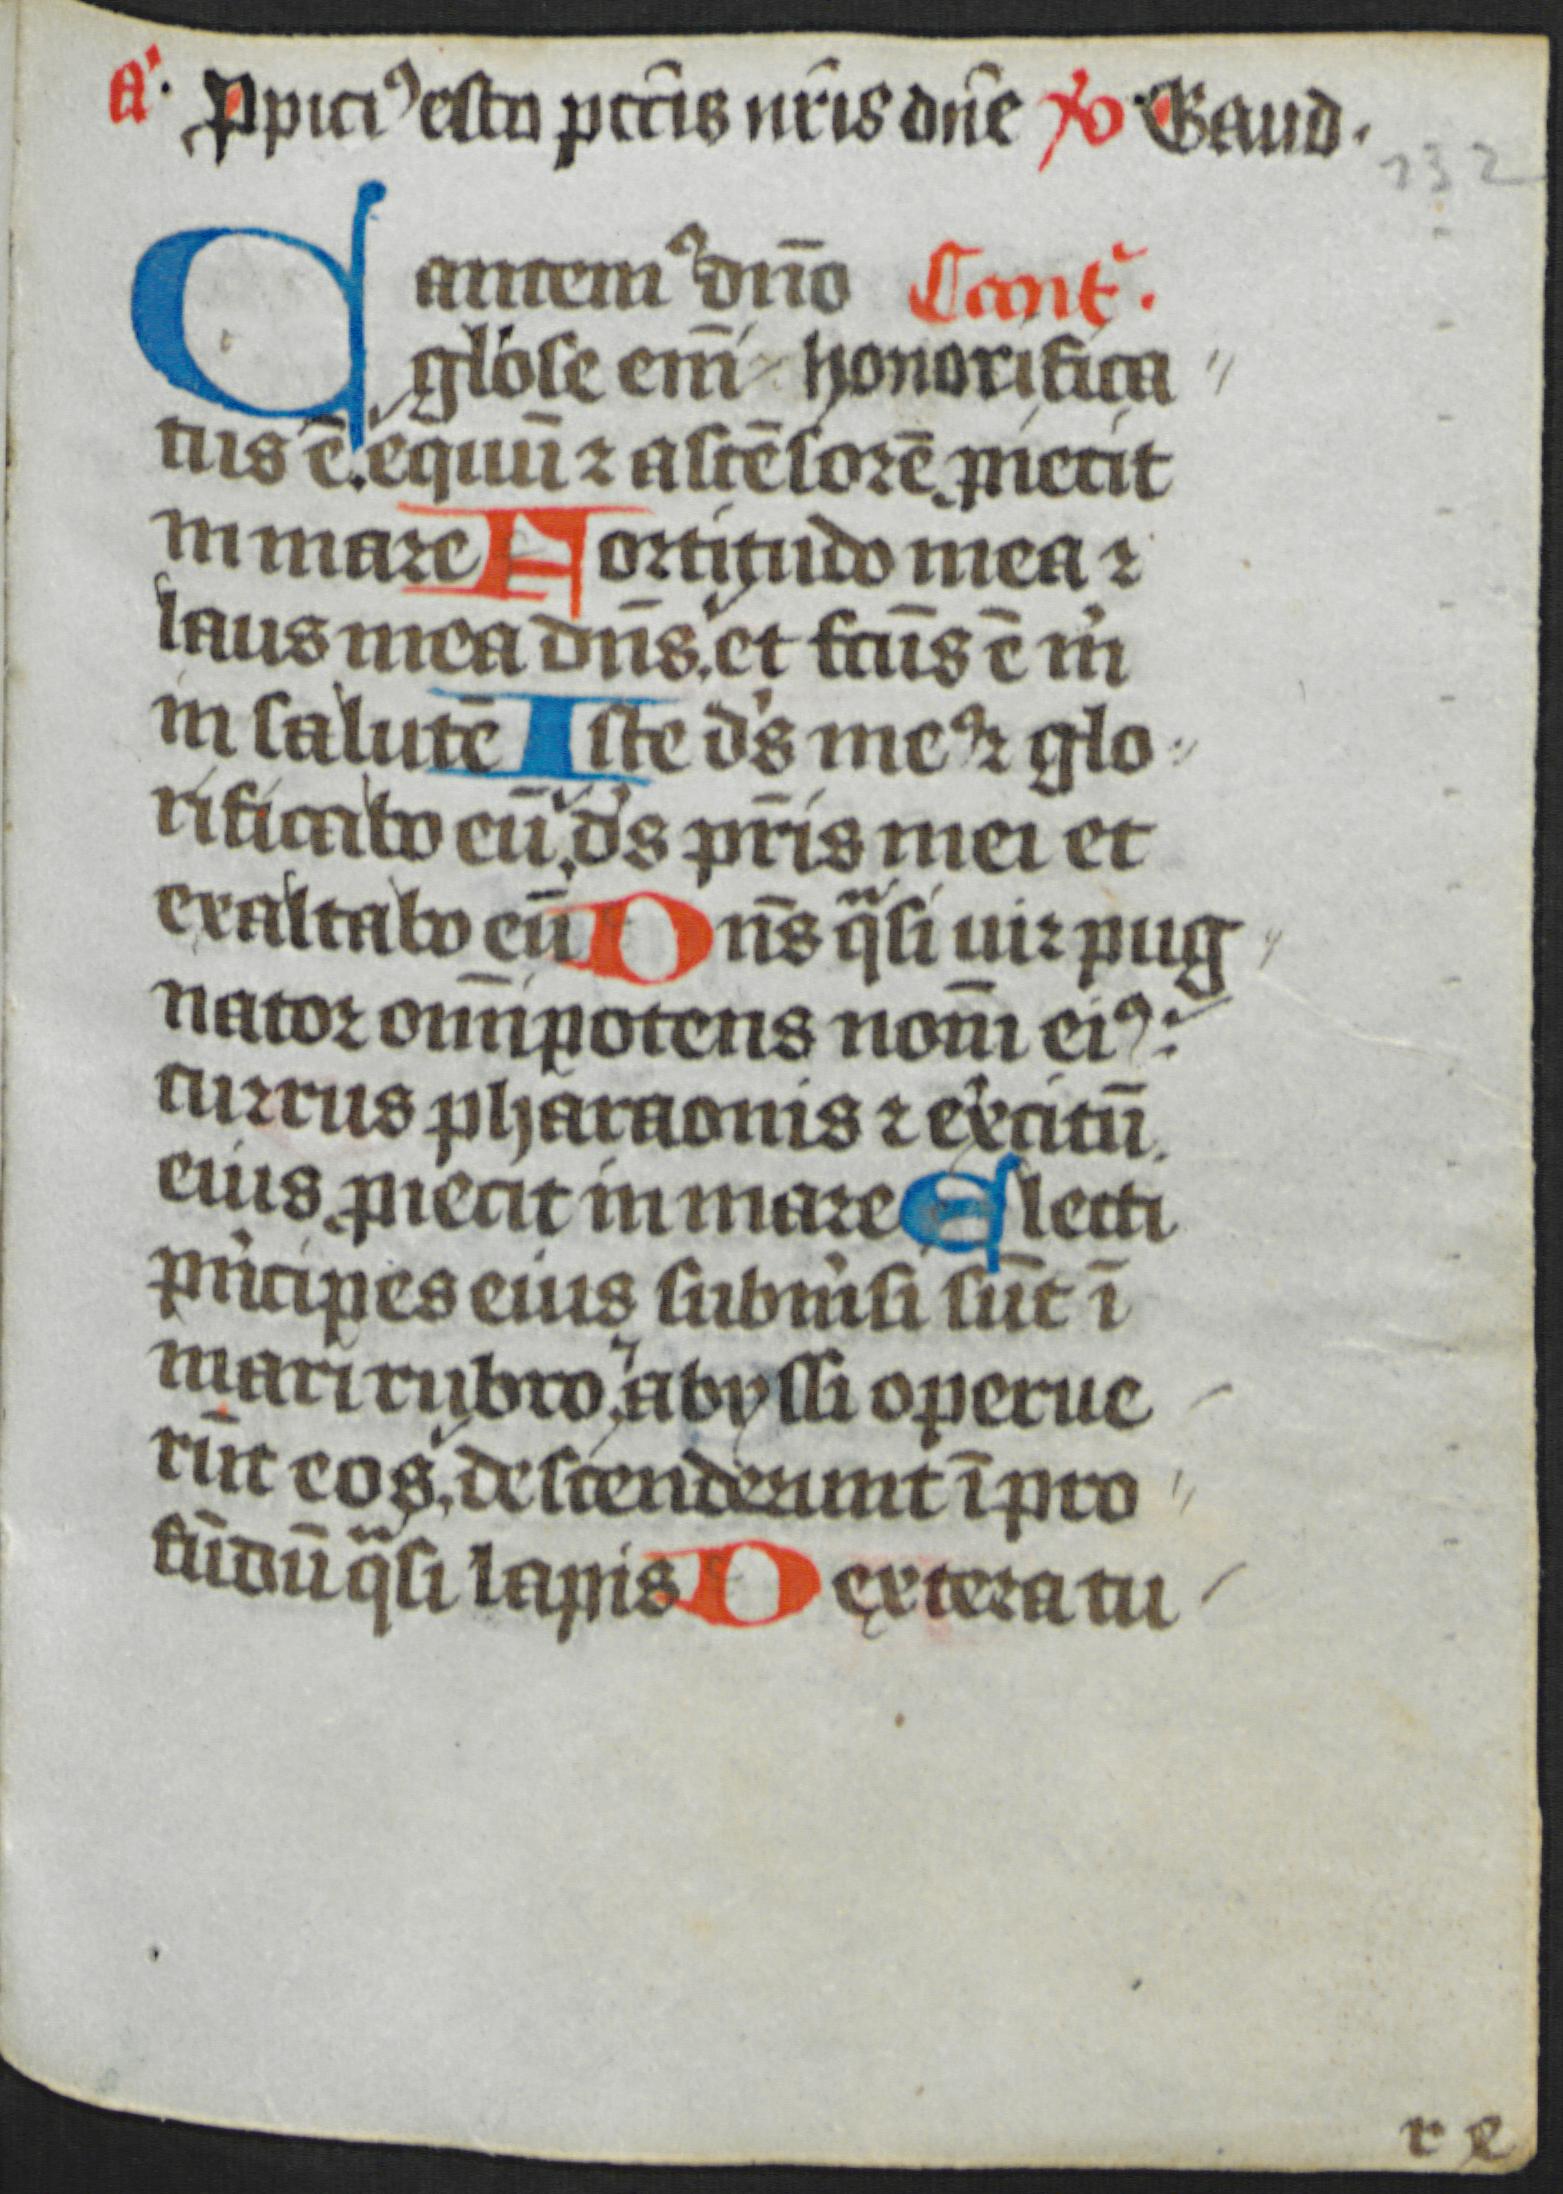 a. Ppiciꝯ esto pccīs nr̄is dn̄e ℣ Gaud.
132
Cantemꝯ dn̄o Cant.
gl'ose em̄ honorifica
tus ē. equū ⁊ ascēsorē ꝓiecit
in mare Fortitudo mea ⁊
laus mea dn̄s. et fcūs ē m̍
in salutē Iste ds̄ meꝯ ⁊ glo
rificabo eū. ds̄ pr̄is mei et
exaltabo eū Dn̄s qͣsi uir pug
nator om̄ipotens nom̄ eiꝯ:
currus pharaonis ⁊ ex̍citū
eius ꝓiecit in mare Electi
pn̍cipes eius subm̍si sūt ī
mari rubro. abyssi operue
rūt eos. descenderunt ī pro
fūdū qͣsi lapis Dextera tu
r e